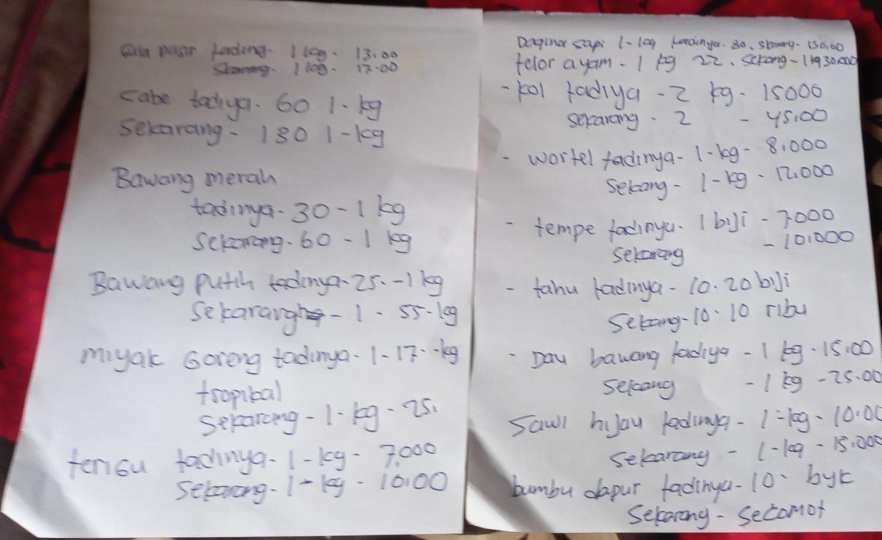 Gula pasir tading - 1 kg - 13.00
Skarang - 1 kg - 17.00
Cabe tadiya - 60 1 - kg
Sekarang - 180 1 - kg
Bawang merah
tadinya - 30 - 1 kg
Sekarang - 60 - 1 kg
Bawang putih tadinya - 25 - 1 kg
Sekarang - 1 - 55 - kg
Miyak Goreng tadinya - 1 - 17 - kg
tropikal
Sekarang - 1 - kg - 25.
terigu tadinya - 1 - kg - 7.000
Sekarang - 1 - kg - 10.00
sapi 1 - kg tadinya . 80 . - 130.00
telor ayam - 1 kg 22 . Sekang - 1 kg 30.000
- kol tadiya - 2 kg - 15000
Sekarang - 2 - 45.00
- wortel tadinya - 1 - kg - 8.000
Sekang - 1 - kg - 12.000
- tempe tadinya - 1 biji - 7.000
Sekarang - 10.000
- tahu tadinya - 10 . 20 biji
Sekang - 10 . 10 ribu
- Dau bawang tadiya - 1 kg - 15.00
Sekang - 1 kg - 25.00
Sawi hijau tadinya - 1 - kg - 10.00
Sekarang - 1 - kg - 15.000
bumbu dapur tadinya - 10 - byk
Sekarang - Secomot